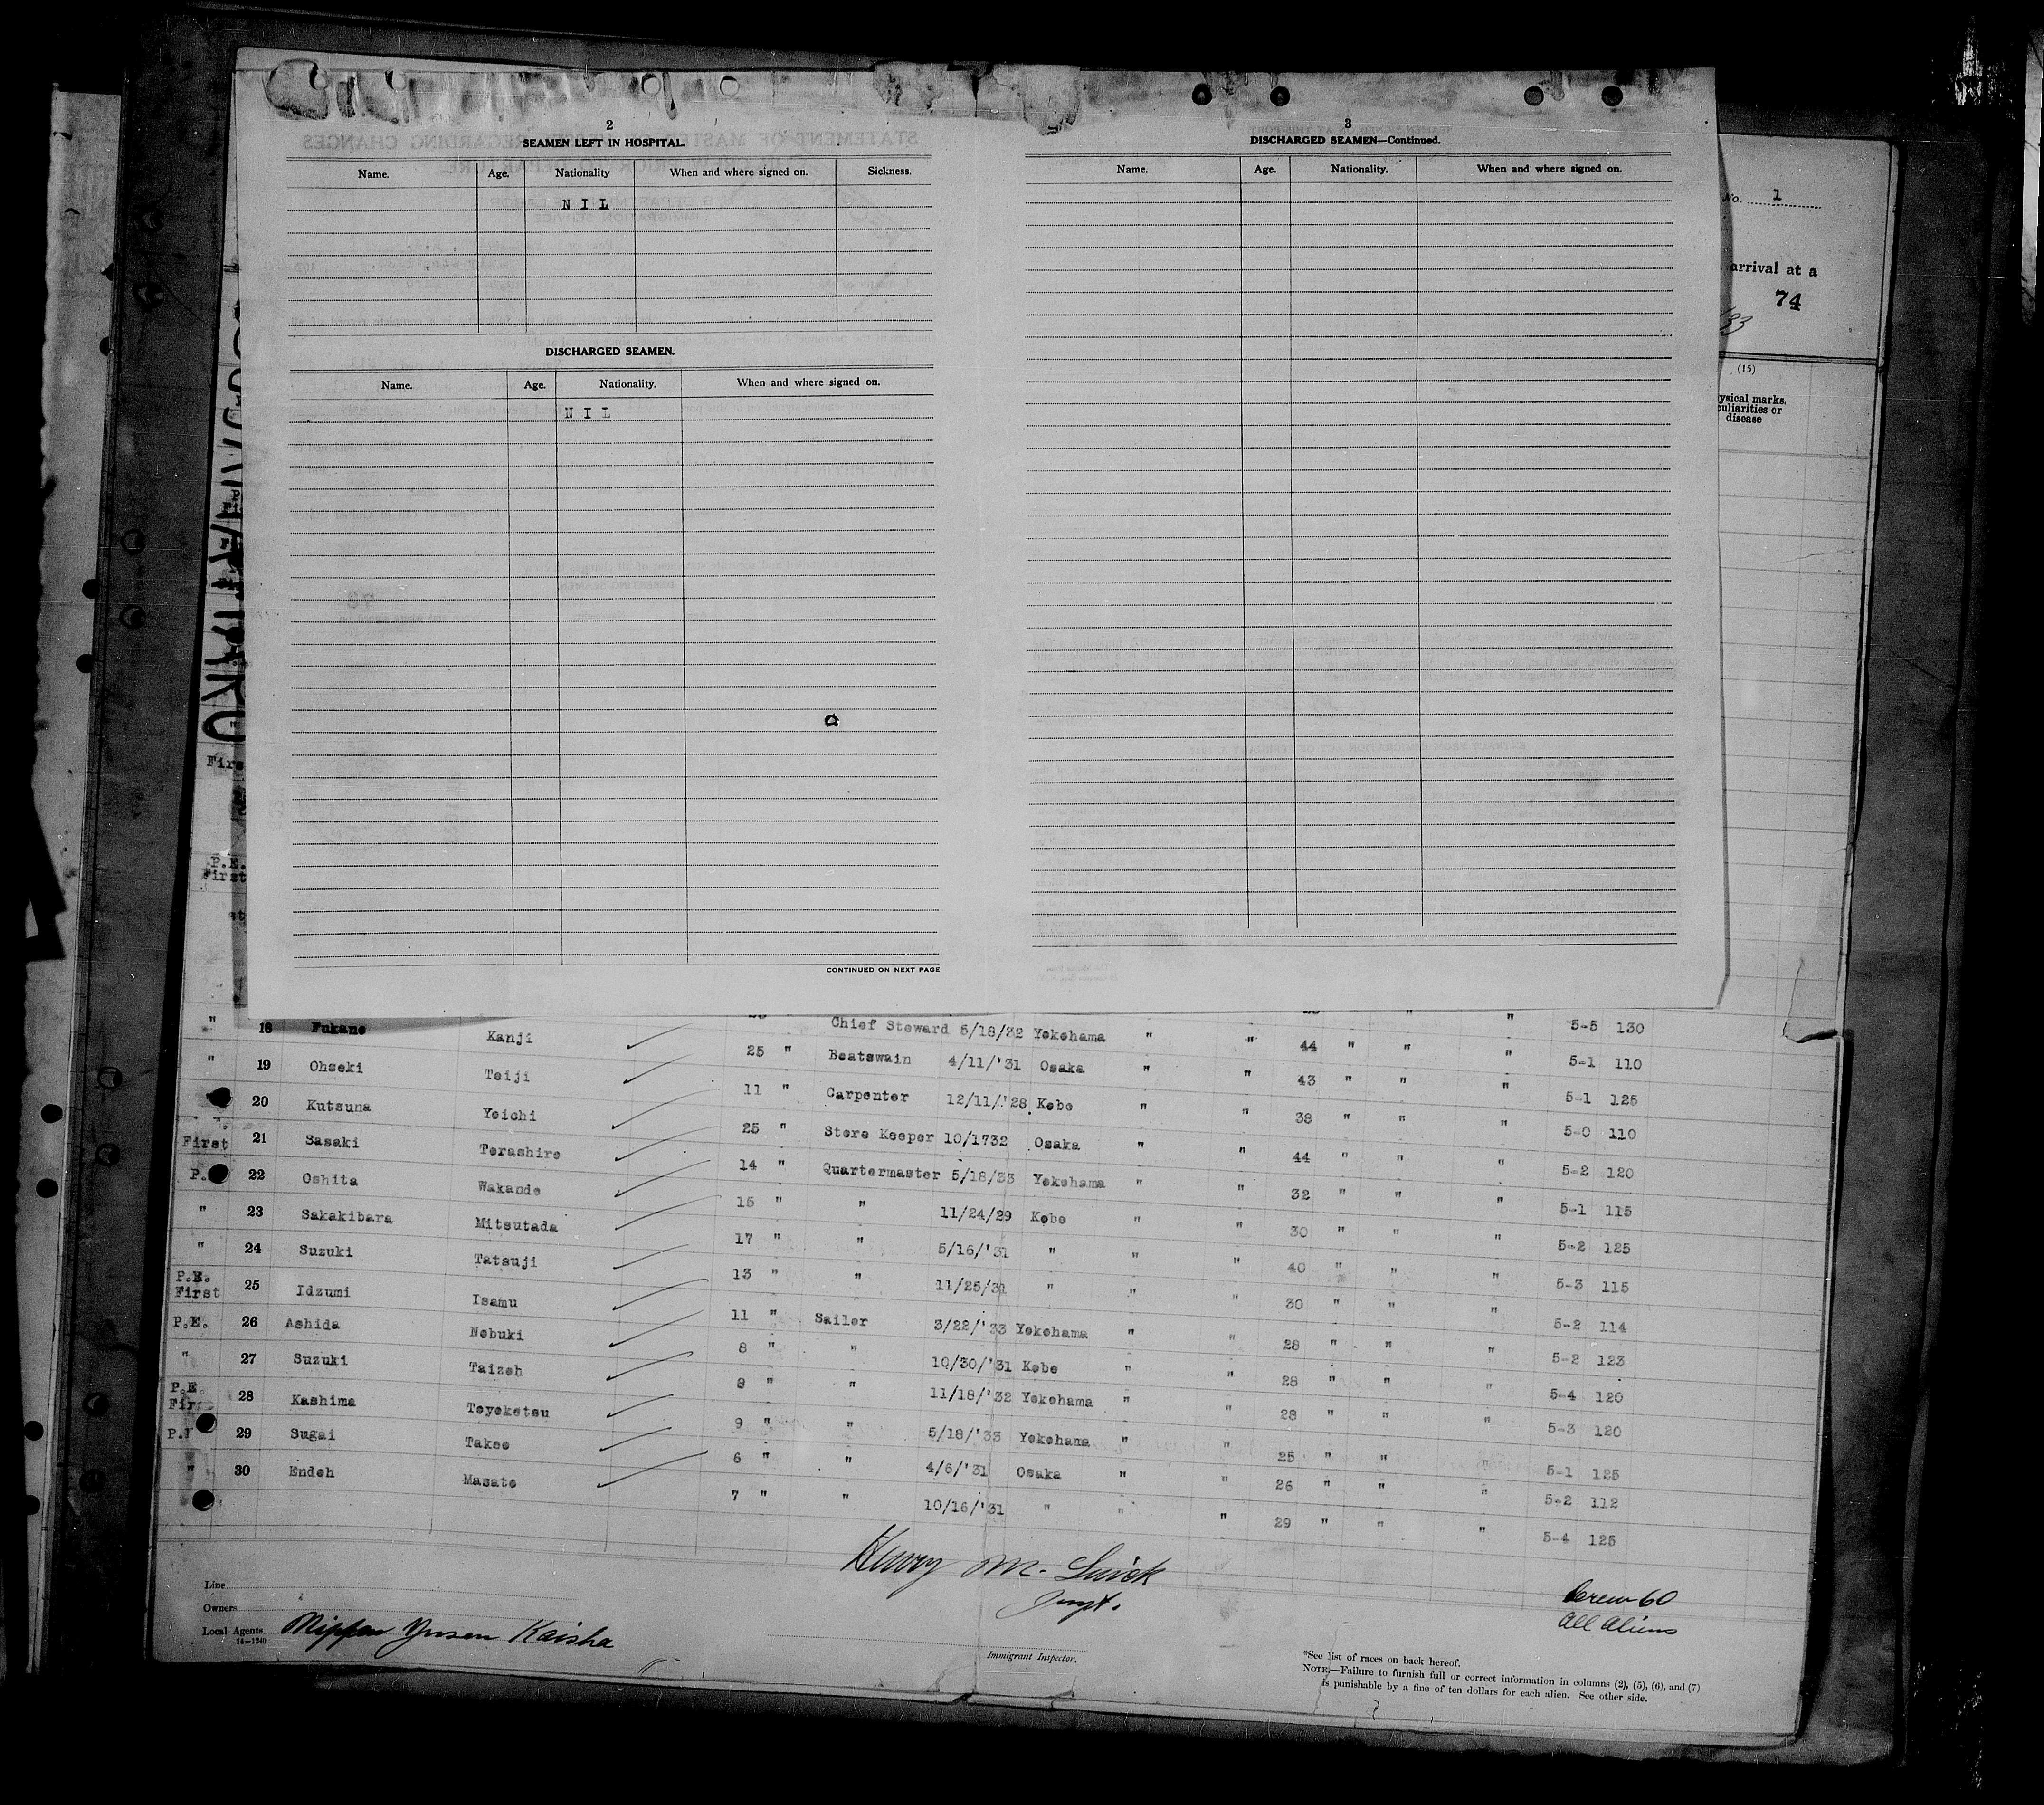 2
SEAMEN LEFT IN HOSPITAL.
Name. Age. Nationality When and where signed on. Sickness.
N I L
DISCHARGED SEAMEN.
Name. Age. Nationality. When and where signed on.
N I L
CONTINUED ON NEXT PAGE
3
DISCHARGED SEAMEN—Continued.
Name. Age. Nationality. When and where signed on.
No. 1
arrival at a
74
(15)
ysical marks,
culiarities or
disease
Firs
P.E.
First
5-5 130
Chief Steward 5/18/32 Yokohama " " 44 " " " 5-1 110
" 18 Fukano Kanji 25 " Boatswain 4/11/'31 Osaka " " 43 " " " 5-1 125
" 19 Ohseki Teiji 11 " Carpenter 12/11/'28 Kobe " " 38 " " " 5-0 110
20 Kutsuna Yeichi 25 " Store Keeper 10/1732 Osaka " " 44 " " " 5-2 120
First 21 Sasaki Terashiro 14 " Quartermaster 5/18/33 Yokohama " " 32 " " " 5-1 115
P. 22 Oshita Wakando 15 " " 11/24/29 Kobe " " 30 " " " 5-2 125
" 23 Sakakibara Mitsutada 17 " " 5/16/'31 " " " 40 " " " 5-3 115
" 24 Suzuki Tatsuji 13 " " 11/25/31 " " " 30 " " " 5-2 114
P.E. First 25 Idzumi Isamu 11 " Sailor 3/22/'33 Yokohama " " 28 " " " 5-2 123
P.E. 26 Ashida Nobuki 8 " " 10/30/'31 Kobe " " 28 " " " 5-4 120
" 27 Suzuki Taizoh 8 " " 11/18/'32 Yokohama " " 28 " " " 5-3 120
P.E. Firs 28 Kashima Toyoketsu 9 " " 5/18/'33 Yokohama " " 25 " " " 5-1 125
P.E 29 Sugai Takeo 6 " " 4/6/'31 Osaka " " 26 " " " 5-2 112
" 30 Endoh Masato 7 " " 10/16/'31 " " " 29 " " " 5-4 125
Crew 60
All Aliens
Line
Owners
Local Agents Nippon Yusen Kaisha
14—1240
Immigrant Inspector.
*See list of races on back hereof.
NOTE.—Failure to furnish full or correct information in columns (2), (5), (6), and (7)
is punishable by a fine of ten dollars for each alien. See other side.